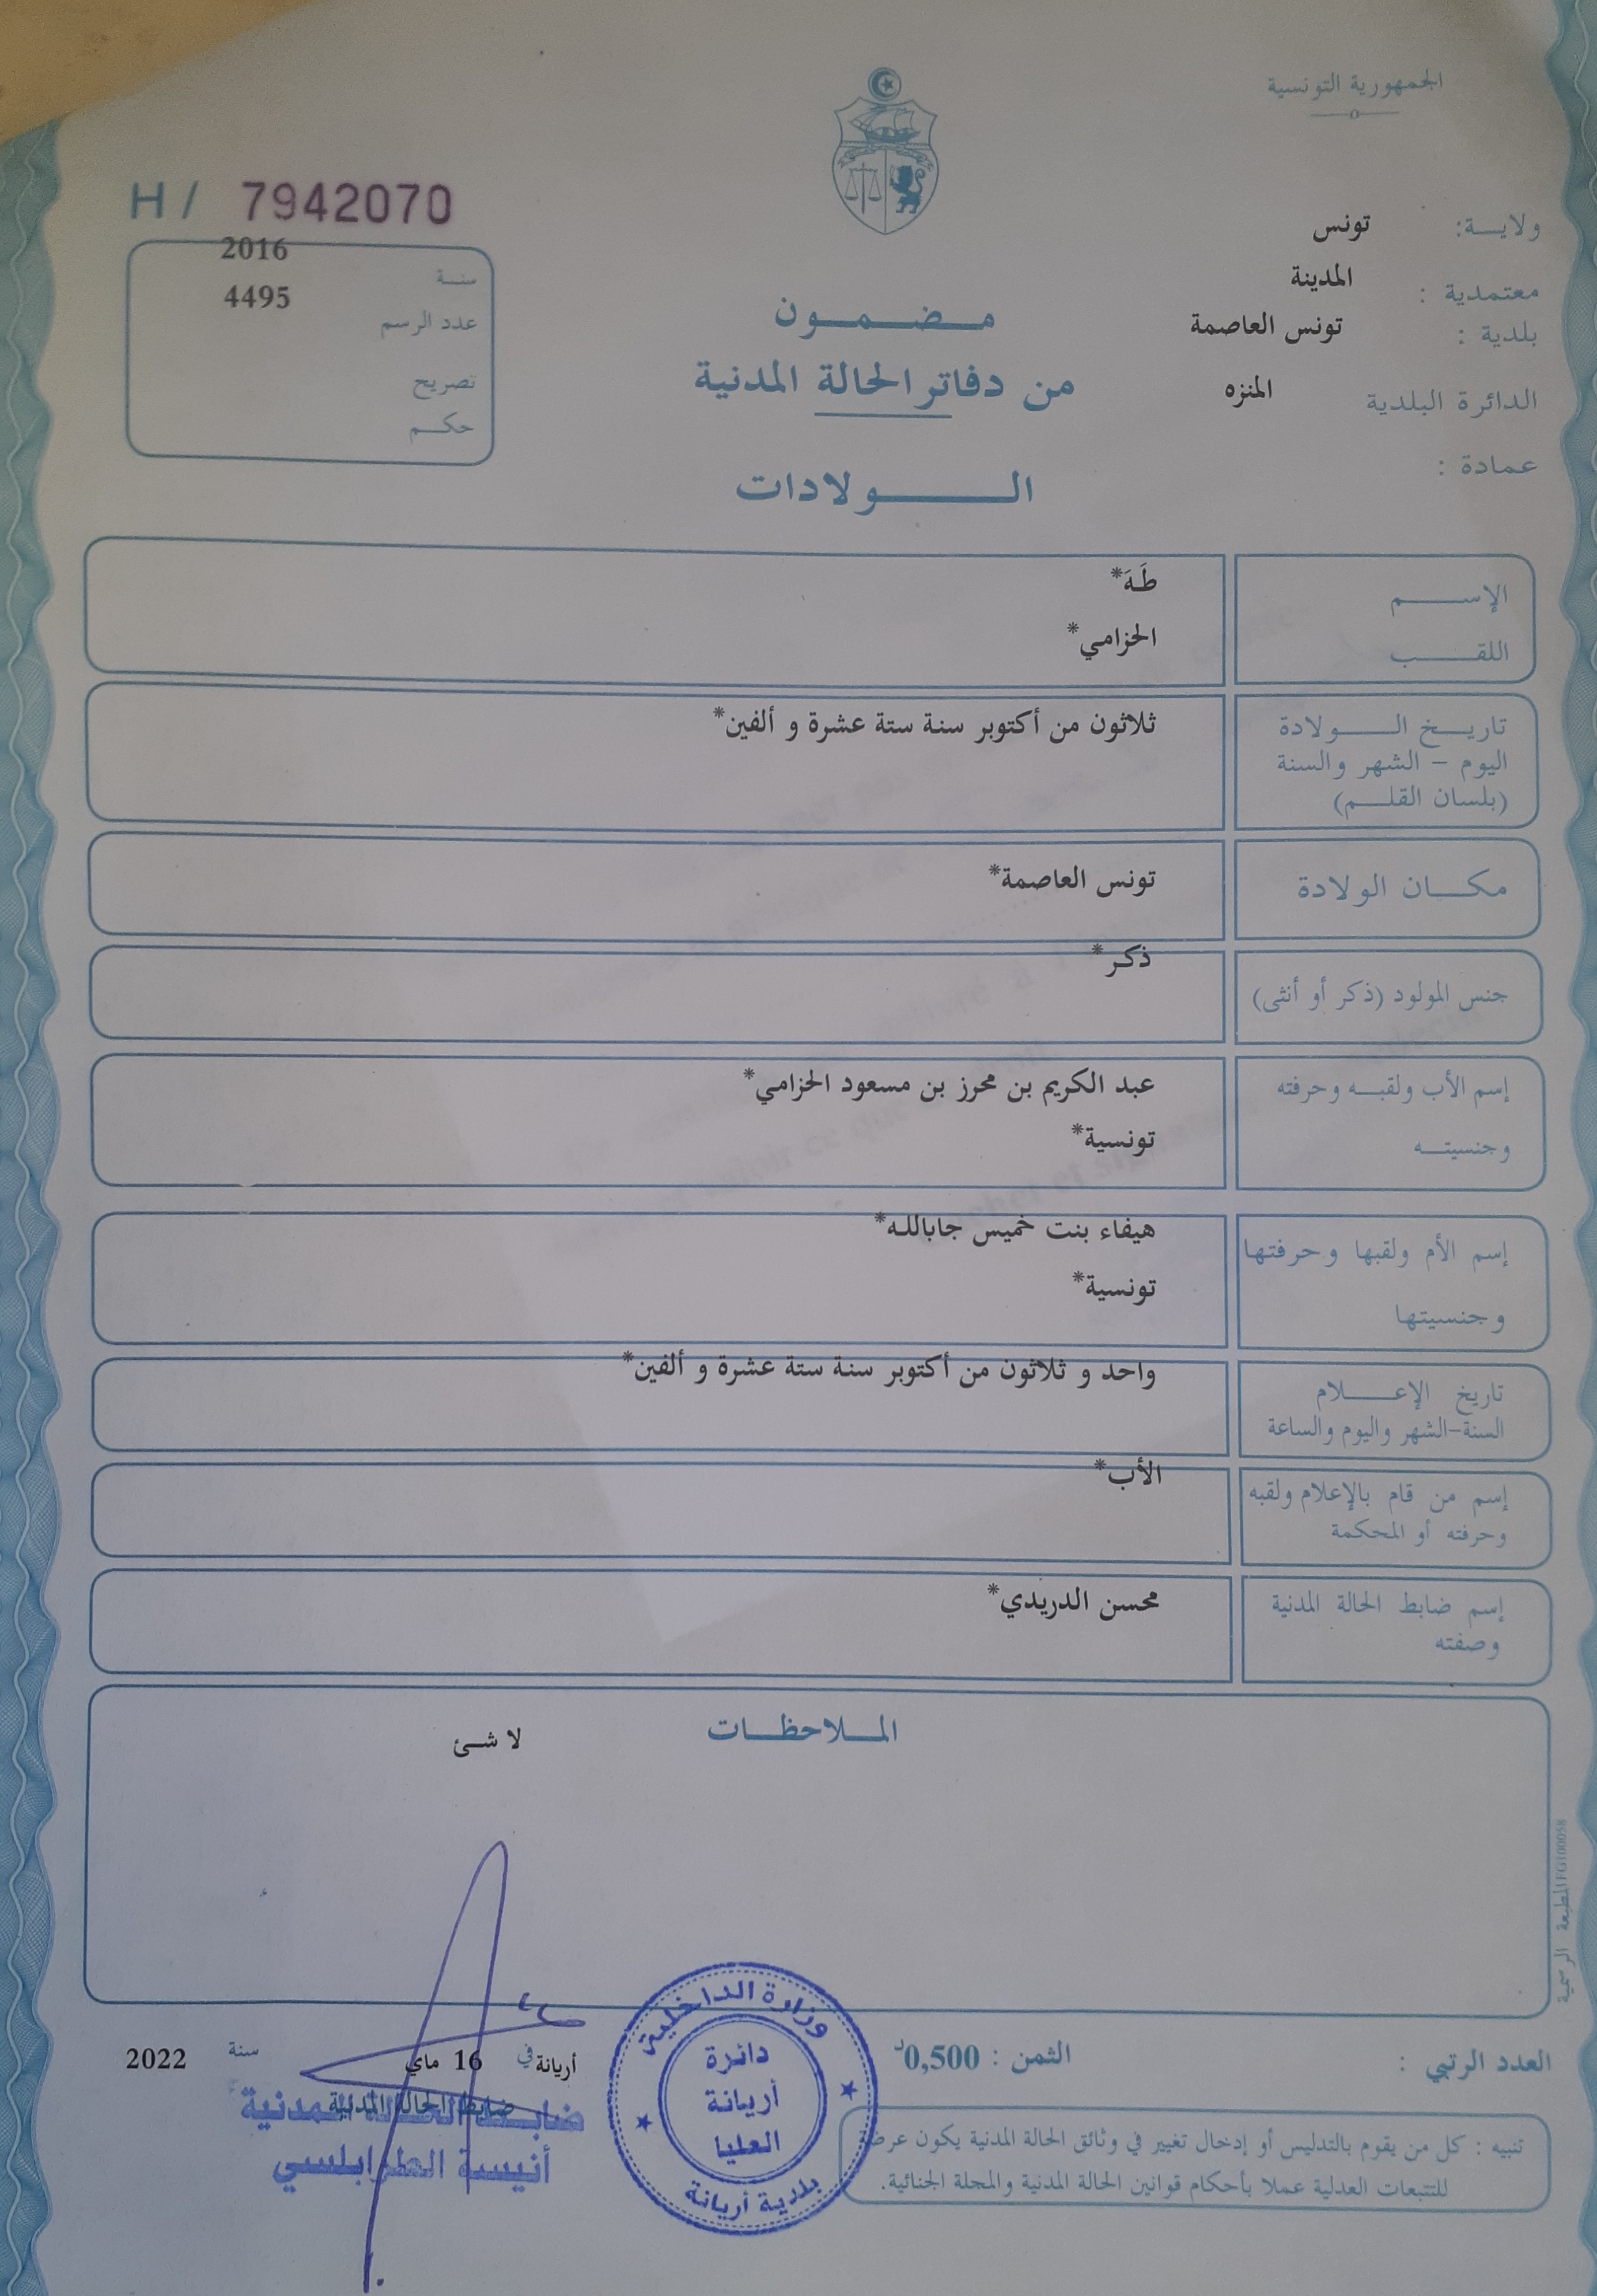 الجمهورية التونسية
H / 7942070
ولايـــة: تونس
معتمدية : المدينة
بلدية : تونس العاصمة
الدائرة البلدية المنزه
عمادة :
سنـة 2016
عدد الرسم 4495
تصريح
حكـــم
مـــضـــمـــون
من دفاتر الحالة المدنية
الـــــــولادات
الإســــــم طَهَ*
اللقــــــب الحزامي*
تاريـــخ الـــــولادة ثلاثون من أكتوبر سنة ستة عشرة و ألفين*
اليوم – الشهر والسنة
(بلسان القلـــم)
مكـــان الولادة تونس العاصمة*
جنس المولود (ذكر أو أنثى) ذكر*
إسم الأب ولقبـــه وحرفته عبد الكريم بن محرز بن مسعود الحزامي*
وجنسيتـــه تونسية*
إسم الأم ولقبها وحرفتها هيفاء بنت خميس جاباللـه*
وجنسيتها تونسية*
تاريخ الإعـــــلام واحد و ثلاثون من أكتوبر سنة ستة عشرة و ألفين*
السنة-الشهر واليوم والساعة
إسم من قام بالإعلام ولقبه الأب*
وحرفته أو المحكمة
إسم ضابط الحالة المدنية محسن الدريدي*
وصفته
المـــلاحظـــات
لا شـئ
المطبعة الرسمية FG100058
العدد الرتبي :
الثمن : 0,500د
أريانة في 16 ماي سنة 2022
ضابط الحالة المدنية
ضابـط الحالـة المدنية
أنيسة الطرابلسي
وزارة الداخلية
دائرة
أريانة
العليا
بلدية أريانة
تنبيه : كل من يقوم بالتدليس أو إدخال تغيير في وثائق الحالة المدنية يكون عرضة
للتتبعات العدلية عملا بأحكام قوانين الحالة المدنية والمجلة الجنائية.